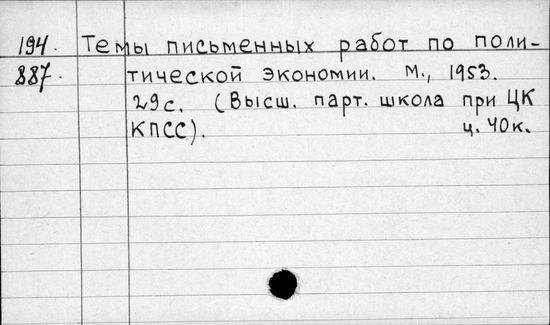 194. Темы письменных работ по поли-
887. тической экономии. М., 1953.
29с. (Высш. парт. школа при ЦК
КПСС). ц. 40к.